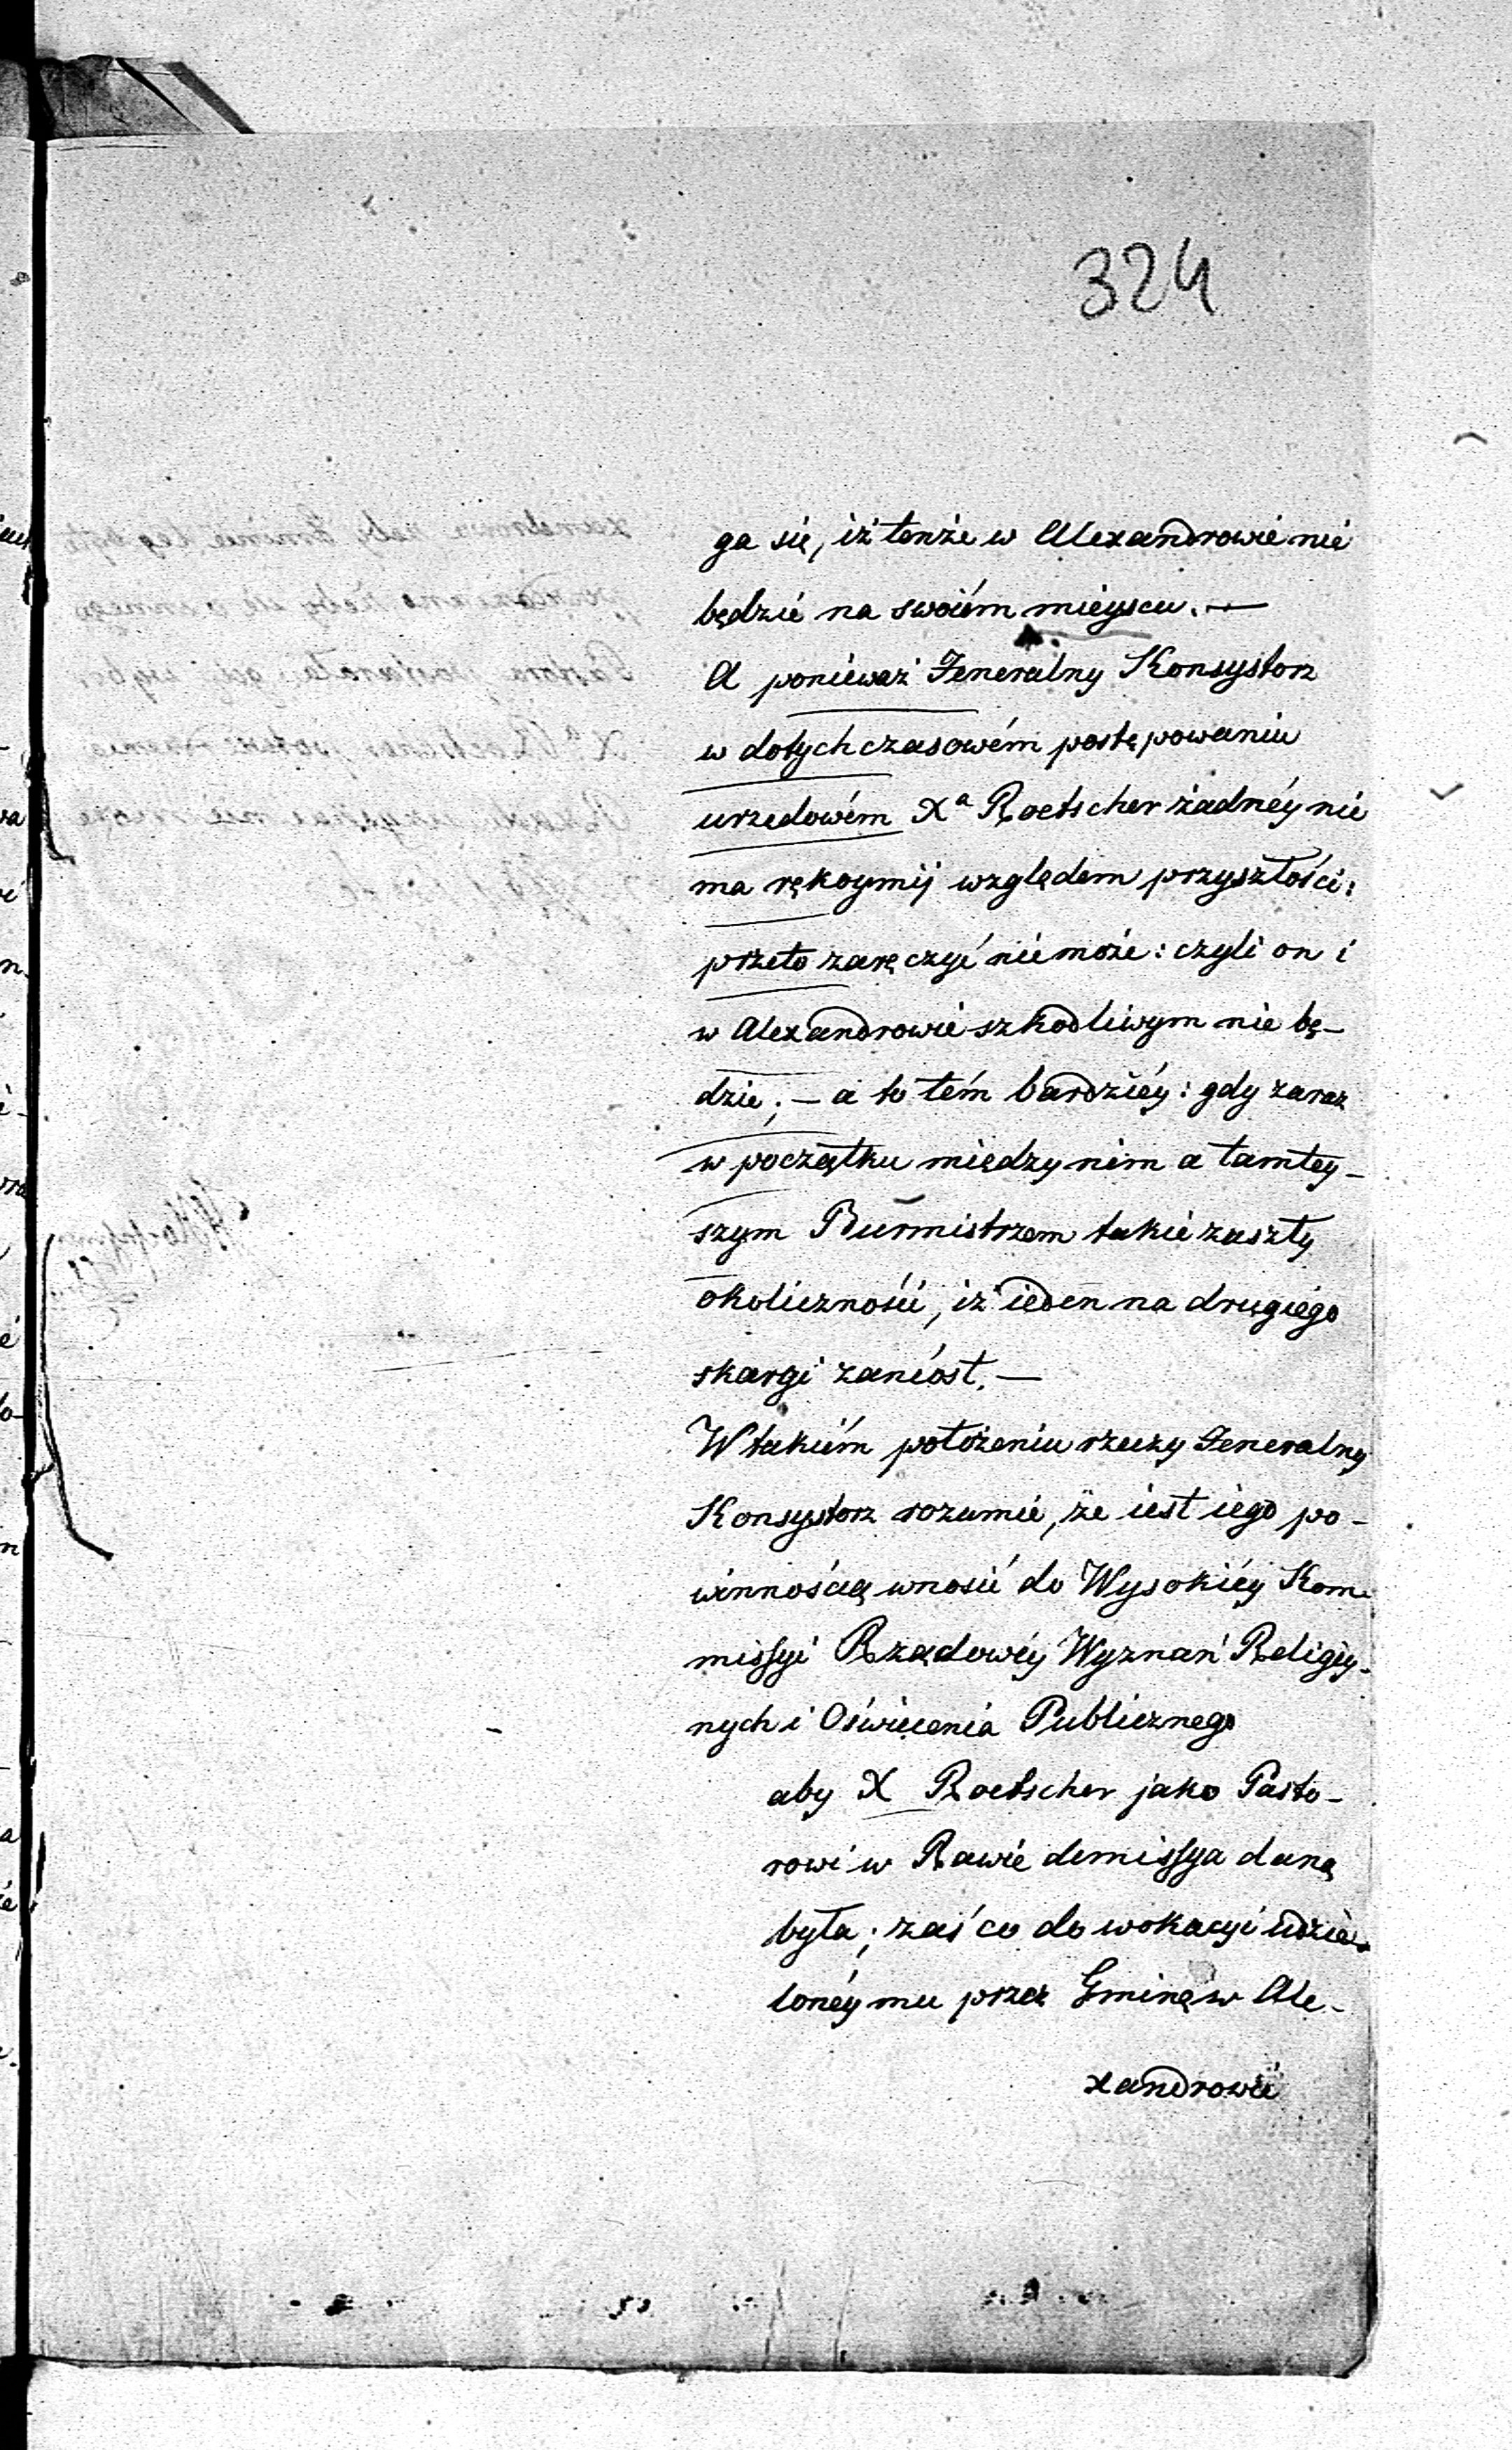 324
ga się, iż tenże w Alexandrowie nie
będzie na swoiém mieyscu. —
A ponieważ Jeneralny Konsystorz
w dotychczasowém postępowaniu
urzędowém Xa Roetscher żadnéy nie
ma rękoymij względem przyszłości:
przeto zaręczyć nie może: czyli on i
w Alexandrowie szkodliwym nie bę-
dzie; — a to tém bardziéy: gdy zaraz
w początku między nim a tamtey-
szym Burmistrzem takie zaszły
okoliczności, iż ieden na drugiego
skargi zaniósł. —
W takiém położeniu rzeczy Jeneralny
Konsystorz rozumie, że iest iego po-
winnością wnosić do Wysokiéy Kom-
missyi Rządowéy Wyznań Religiy-
nych i Oświecenia Publicznego
aby X Roetscher jako Pasto-
rowi w Rawie demissya daną
była; zaś co do wokacyi udzie-
lonéy mu przez Gminę w Ale-
xandrowie